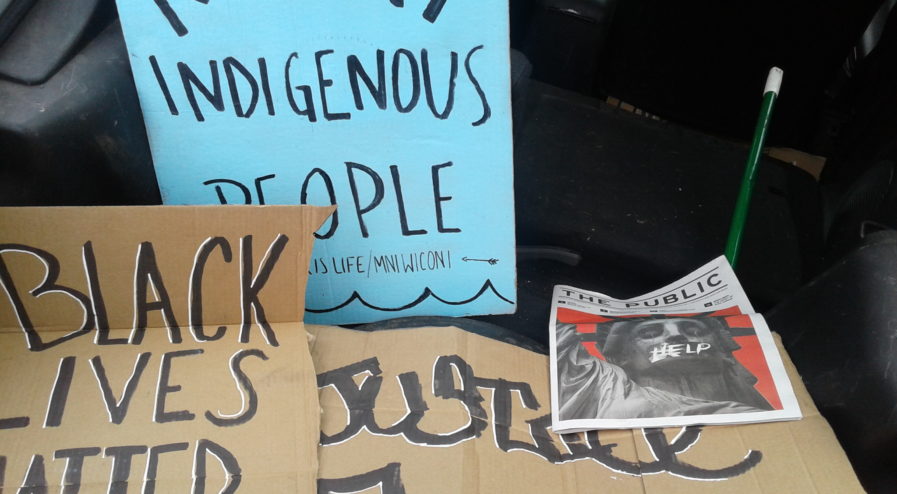 INDIGENOUS
PEOPLE
IS LIFE/MNI WICONI
BLACK
LIVES
MATTER
JUSTICE
THE PUBLIC
HELP